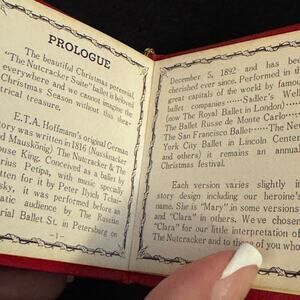 PROLOGUE
The beautiful Christmas perennial,
"The Nutcracker Suite" ballet is beloved
everywhere and we cannot imagine the
Christmas Season without this
trical treasure.
E.T.A. Hoffmann's original German
ory was written in 1816 (Nussknacker
d Mausköning) The Nutcracker & The
ouse King. Conceived as a ballet by
rius Petipa, with music specially
tten for it by Peter Ilyich
sky, it was performed before an
atic audience by The Russian
erial Ballet St. in Petersburg on
-1-
December 5, 1892 and has been
cherished ever since. Performed in
great capitals of the world by famous
ballet companies ······ Sadler's
(now The Royal Ballet in London)
The Ballet Russe de Monte Carlo
The San Francisco Ballet ··· The New
York City Ballet in Lincoln Center
and others; it remains an annual
Christmas festival.
Each version varies slightly in
story design including our heroine's
name. She is "Mary" in some versions
and "Clara" in others. We've chosen
"Clara" for our little interpretation of
The Nutcracker and to those of you who